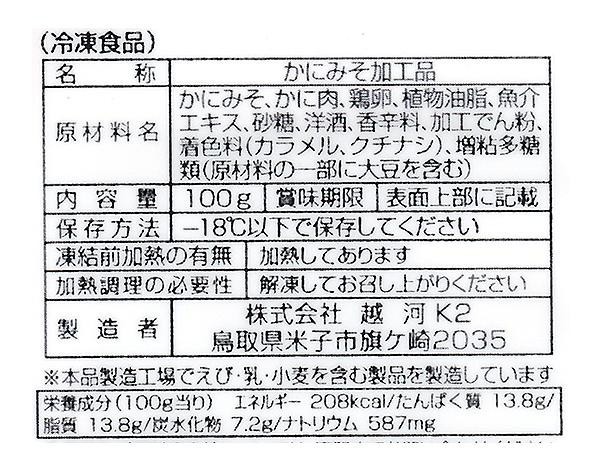 (冷凍食品)
名 称 かにみそ加工品
原材料名 かにみそ、かに肉、鶏卵、植物油脂、魚介
エキス、砂糖、洋酒、香辛料、加工でん粉、
着色料(カラメル、クチナシ)、増粘多糖
類(原材料の一部に大豆を含む)
内容量 100g 賞味期限 表面上部に記載
保存方法 −18℃以下で保存してください
凍結前加熱の有無 加熱してあります
加熱調理の必要性 解凍してお召し上がりください
製造者 株式会社 越河K2
鳥取県米子市旗ケ崎2035
※本品製造工場でえび・乳・小麦を含む製品を製造しています
栄養成分(100g当り) エネルギー 208kcal/たんぱく質 13.8g/
脂質 13.8g/炭水化物 7.2g/ナトリウム 587mg